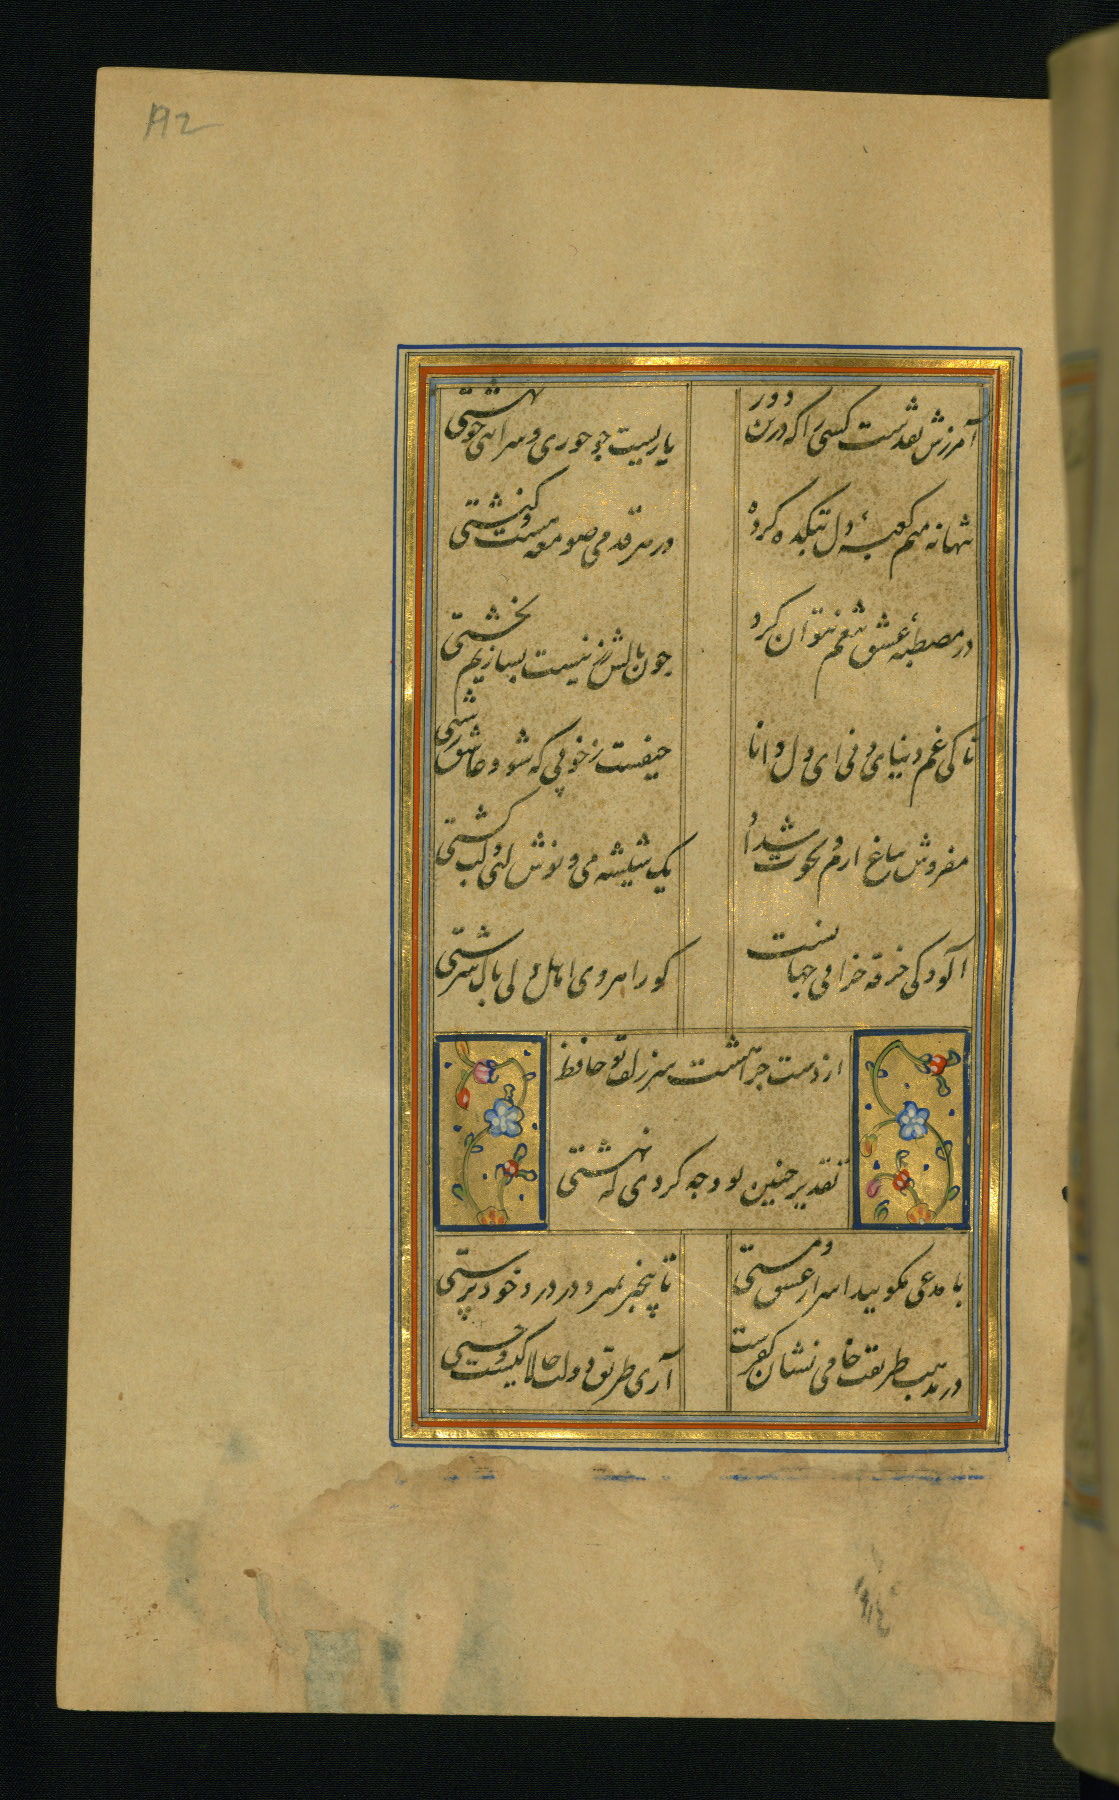 192
آمرزش نقدست کسی را که درین دور
یاریست چو حوری و سرائی چو بهشتی
تنها نه منم کعبهٔ دل بتکده کرده
در هر قدمی صومعه هست و کنشتی
در مصطبهٔ عشق تنعم نتوان کرد
چون بالش زر نیست بسازیم بخشتی
تا کی غم دنیای دنی ای دل دانا
حیفست ز خوبی که شود عاشق زشتی
مفروش بباغ ارم و نخوت شداد
یک شیشه می و نوش لبی و لب کشتی
آلودگی خرقه خرابی جهانست
کو راهروی اهل دلی پاک سرشتی
از دست چرا هشت سر زلف تو حافظ
تقدیر چنین بود چه کردی که نهشتی
با مدعی مگویید اسرار عشق و مستی
تا بیخبر بمیرد در درد خودپرستی
در مذهب طریقت خامی نشان کفرست
آری طریق دولت چالاکیست و چستی